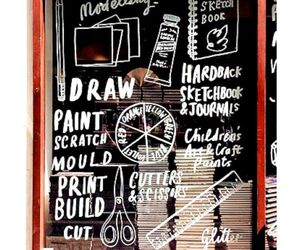 Modelling
SKETCH
BOOK
DRAW
HARDBACK
SKETCHBOOK
& JOURNALS
PAINT
SCRATCH
RED ORANGE YELLOW GREEN BLUE
MOULD
Childrens
Art & Craft
Paints
PRINT
CUTTERS
& SCISSORS
BUILD
CUT
Glitter